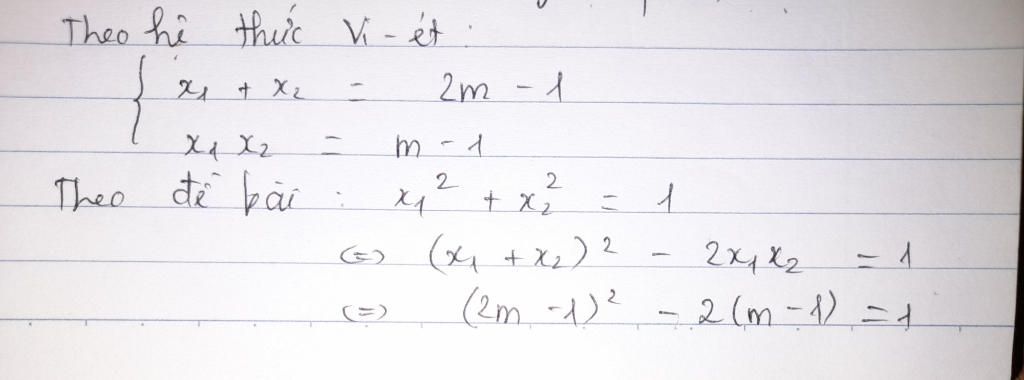 Theo hệ thức Vi-ét :
{ x₁ + x₂ = 2m - 1
x₁ x₂ = m - 1
Theo đề bài : x₁² + x₂² = 1
<=> (x₁ + x₂)² - 2x₁x₂ = 1
<=> (2m - 1)² - 2(m - 1) = 1